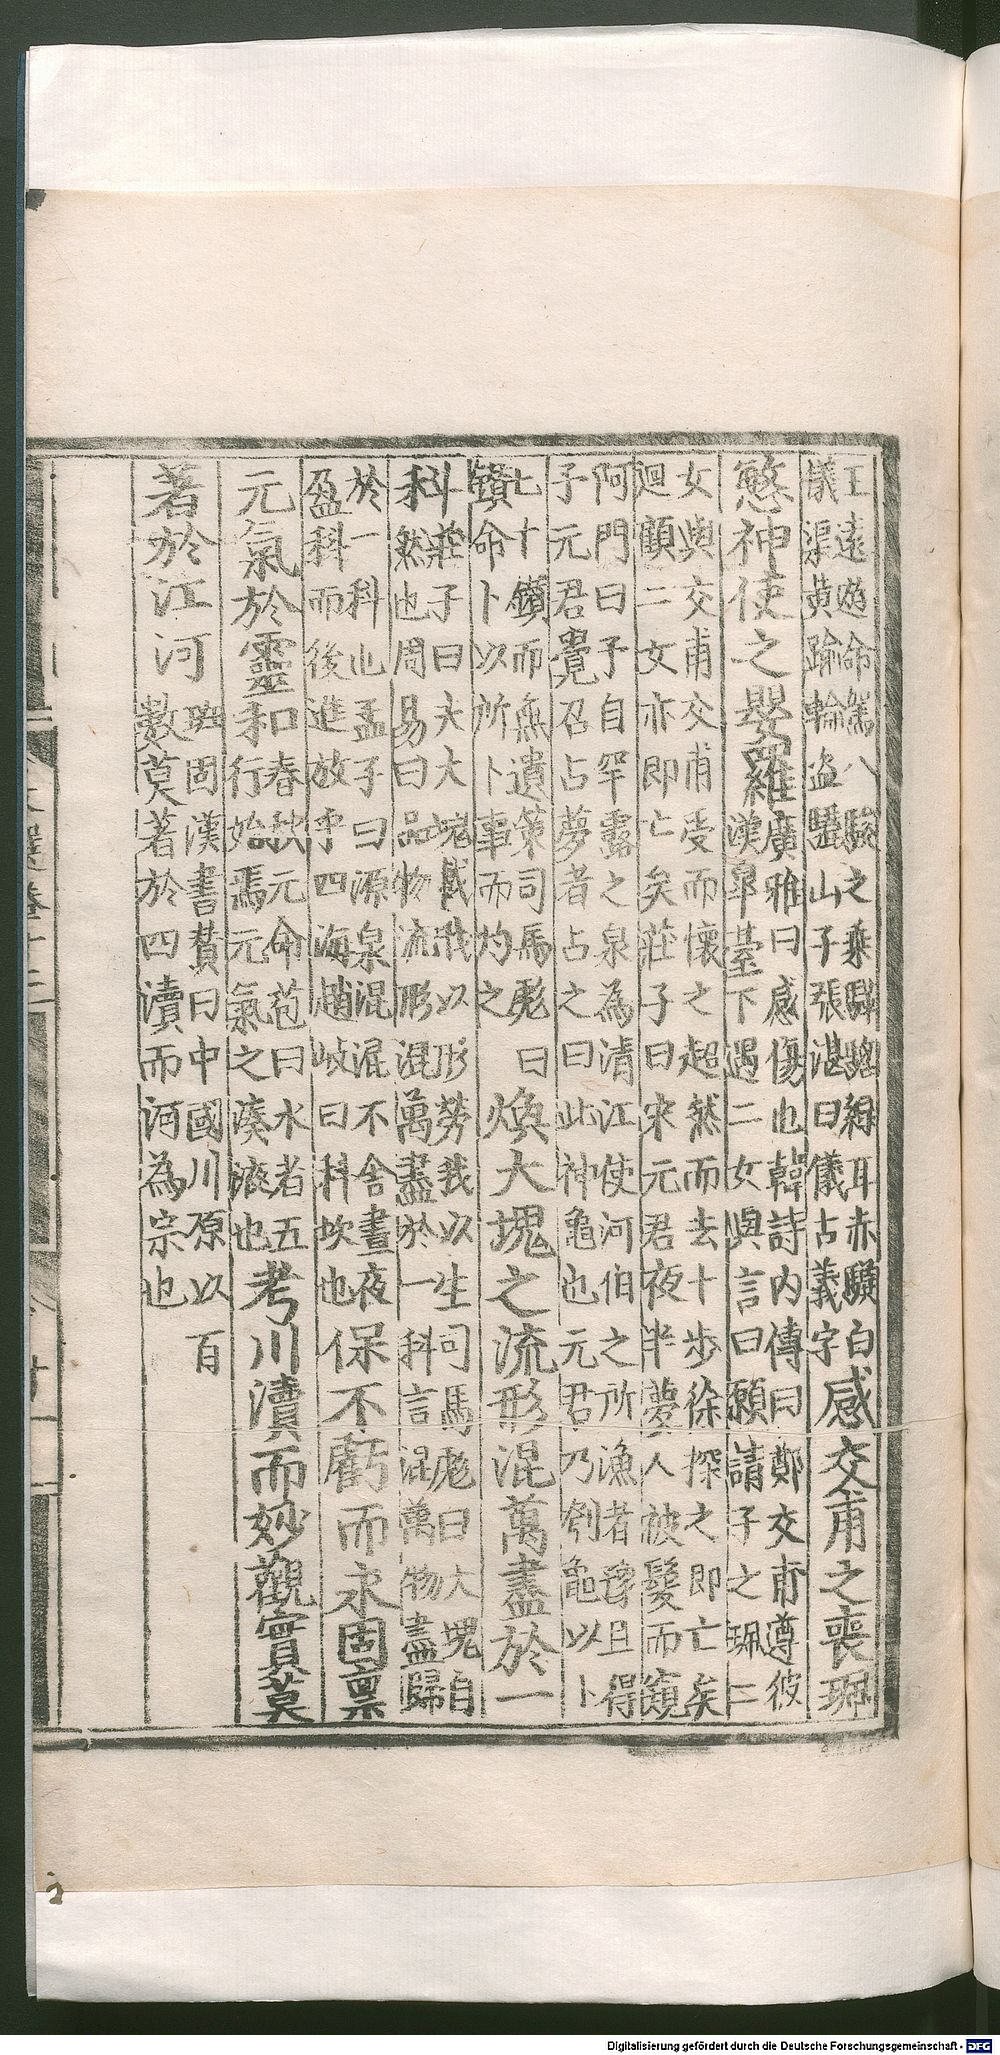 王遠遊命駕八駿之乘驊騮綠耳赤驥白
儀渠黃踰輪盜驪山子張湛曰儀古義字
感交甫之喪珮
愍神使之嬰羅
廣雅曰感傷也韓詩內傳曰鄭交甫遵彼
漢皐臺下遇二女與言曰願請子之珮二
女與交甫交甫受而懷之超然而去十步徐探之即亡矣
迴顧二女亦即亡矣莊子曰宋元君夜半夢人被髮而窺
阿門曰予自罕露之泉為清江使河伯之所漁者豫且得
予元君覺召占夢者占之曰此神龜也元君乃刳龜以卜
七十鑽而無遺策司馬彪曰
鑽命卜以所卜事而灼之
煥大塊之流形混萬盡於一
科
莊子曰夫大塊載我以形勞我以生司馬彪曰大塊自
然也周易曰品物流形混萬盡於一科言混萬物盡歸
於一科也孟子曰源泉混混不舍晝夜
盈科而後進放乎四海趙岐曰科坎也
保不虧而永固稟
元氣於靈和
春秋元命苞曰水者五
行始焉元氣之湊液也
考川瀆而妙觀實莫
著於江河
班固漢書贊曰中國川原以百
數莫著於四瀆而河為宗也
Digitalisierung gefördert durch die Deutsche Forschungsgemeinschaft - DFG